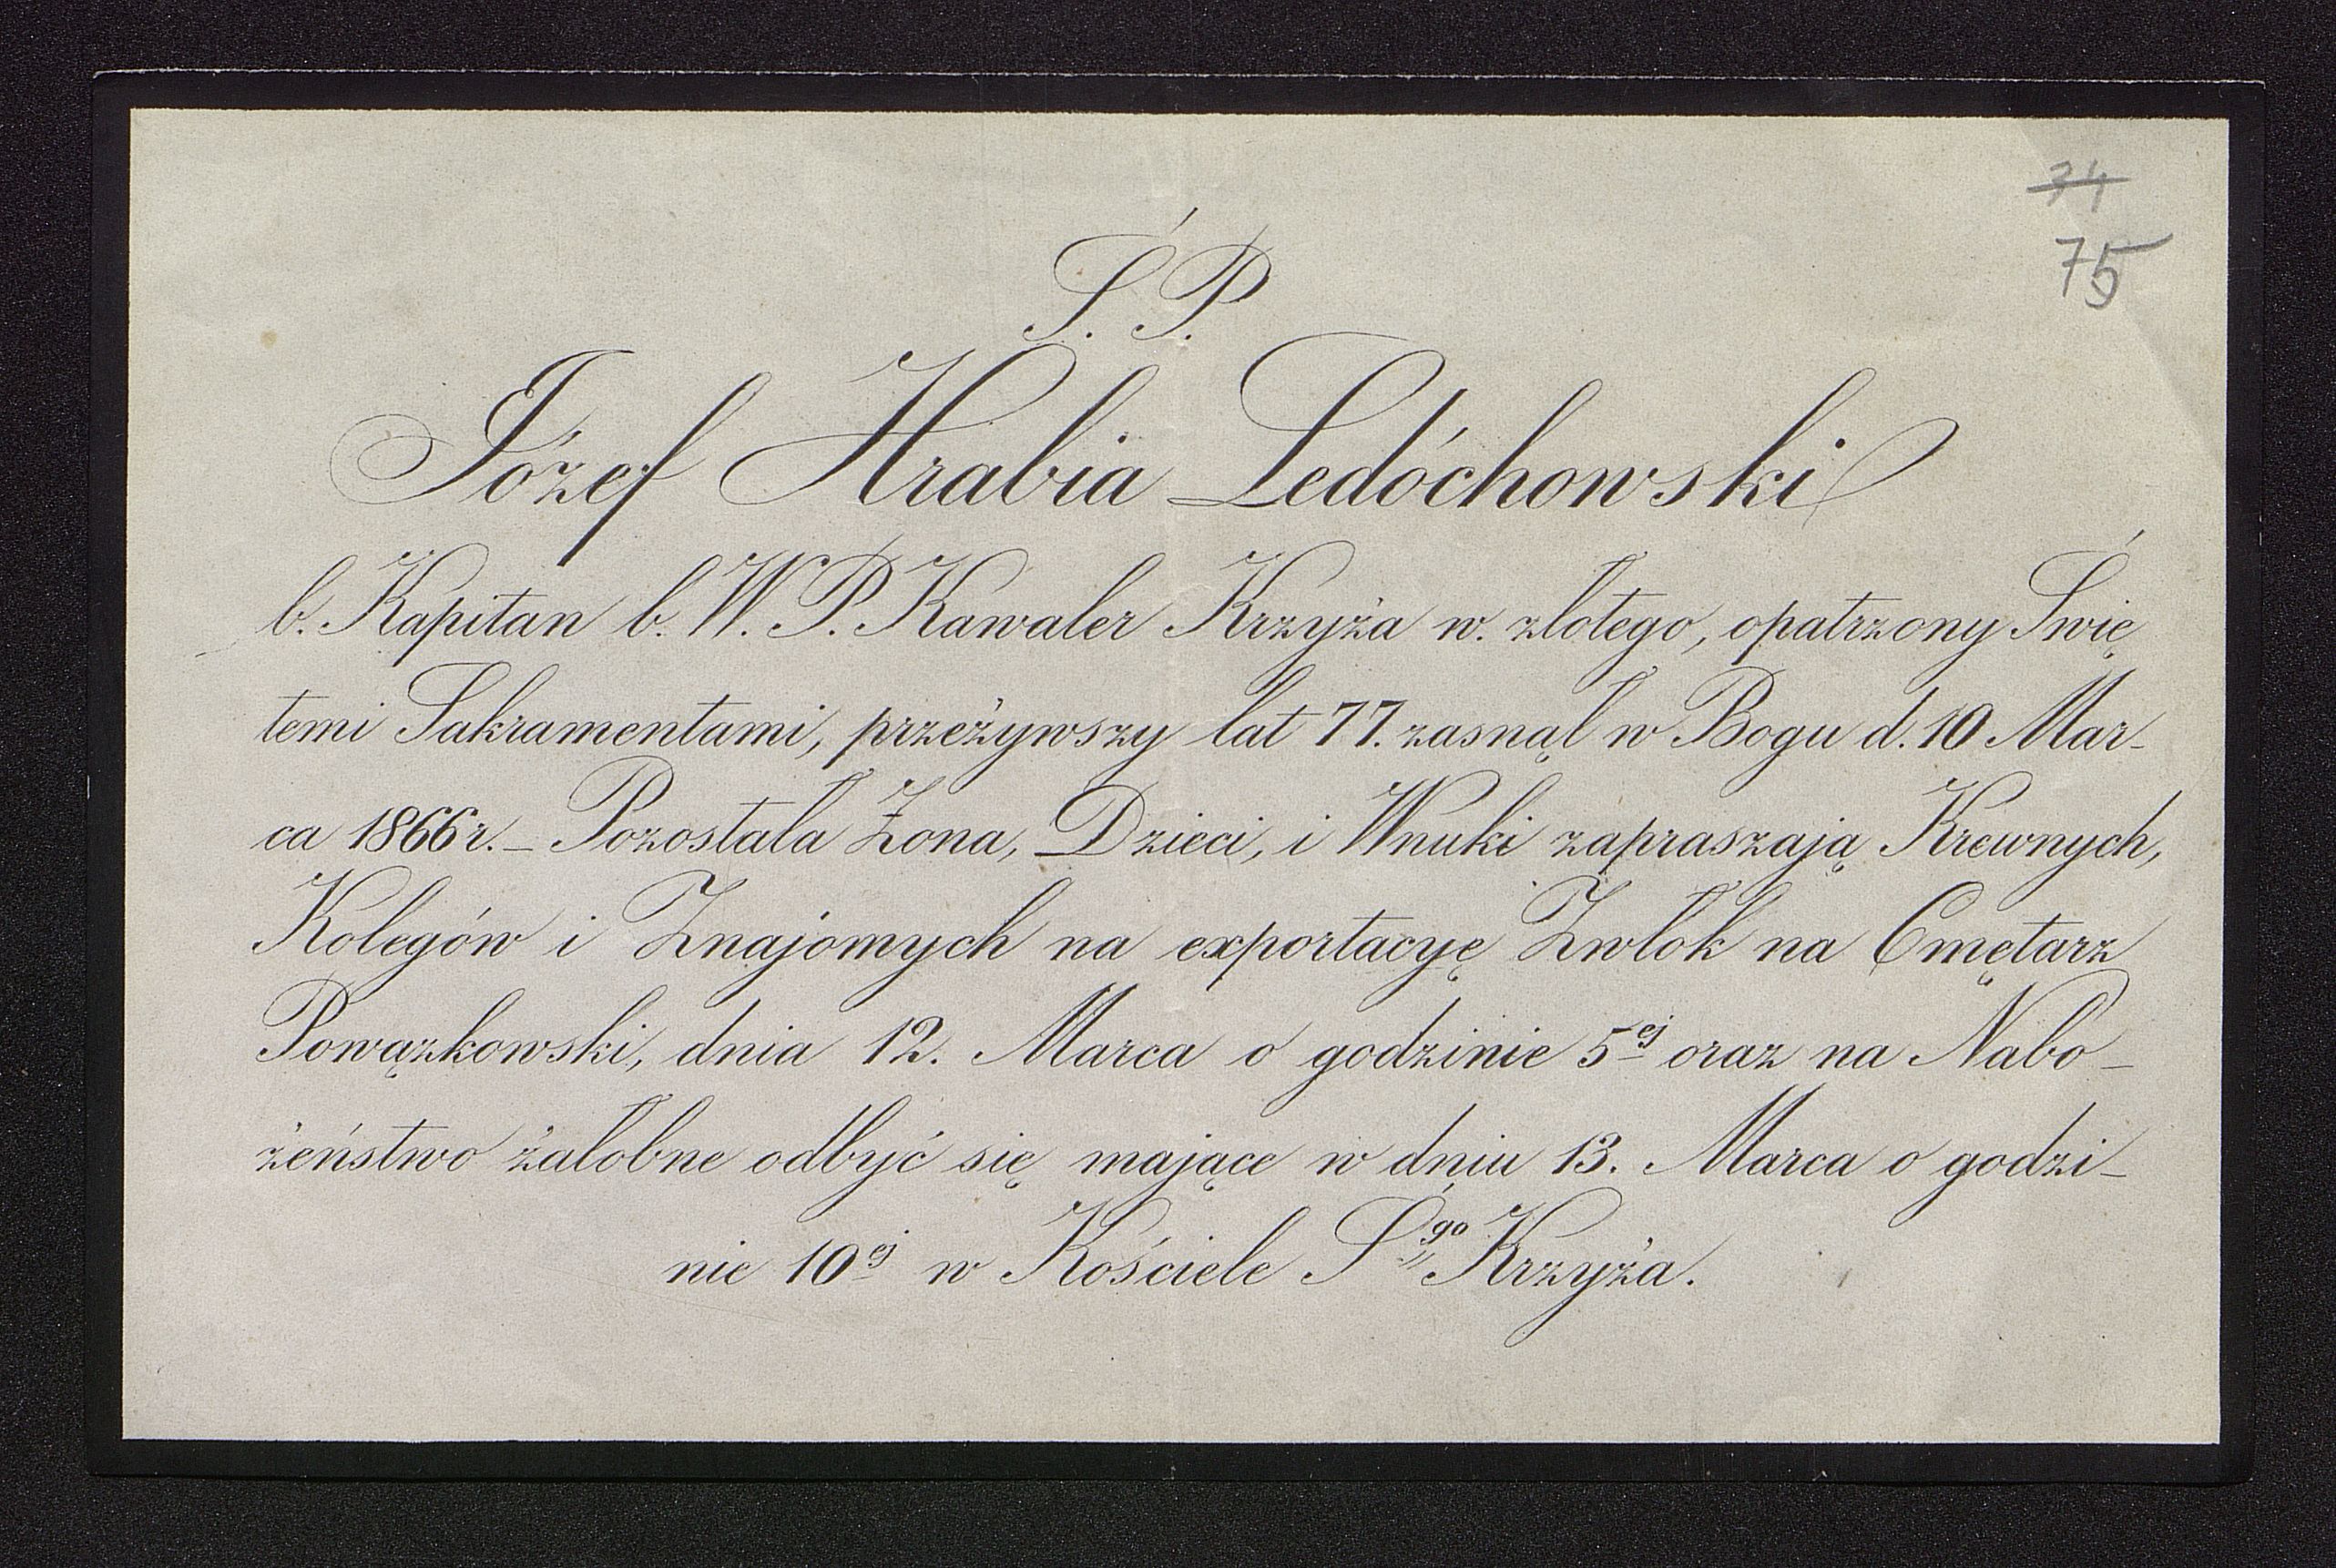 34
75
Ś. P.
Józef Hrabia Ledóchowski
b. Kapitan b. W. P. Kawaler Krzyża w. złotego, opatrzony Świę
temi Sakramentami, przeżywszy lat 77. zasnął w Bogu d. 10 Mar-
ca 1866 r. – Pozostała Żona, Dzieci, i Wnuki zapraszają Krewnych,
Kolegów i Znajomych na exportacyę Zwłok na Cmętarz
Powązkowski, dnia 12. Marca o godzinie 5ej oraz na Nabo-
żeństwo żałobne odbyć się mające w dniu 13. Marca o godzi-
nie 10ej w Kościele Śgo Krzyża.